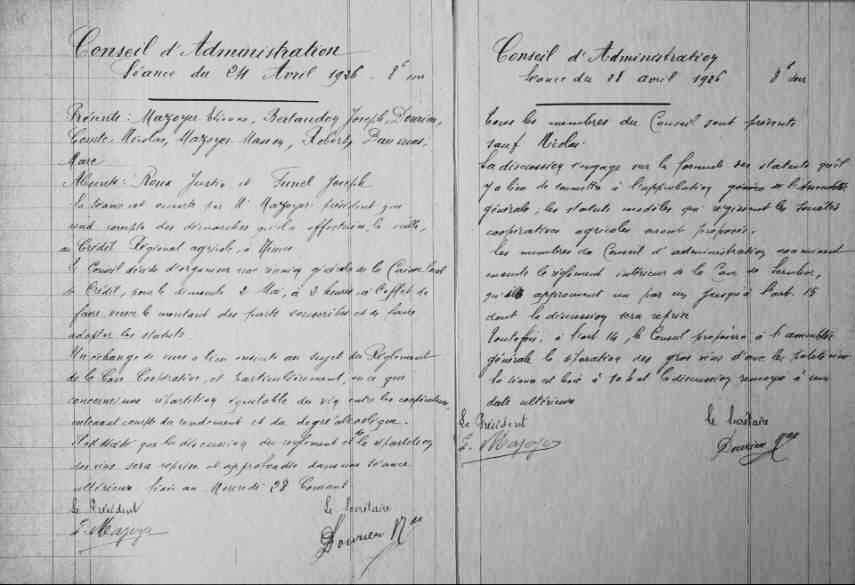 Conseil d'Administration
Séance du 24 Avril 1926 - 8h soir
Présents : Mazoyer Etienne, Bertaudon Joseph, Dourieu,
Comte Nicolas, Mazoyer Masson, Robert, Daumas
Marc
Absents : Roux Justin et Funel Joseph
La séance est ouverte par Mr Mazoyer président qui
rend compte des démarches qu'il a effectuées, la veille,
au Crédit Régional agricole, à Nimes
Le Conseil décide d'organiser une réunion générale de la Caisse Locale
de Crédit, pour le dimanche 2 Mai, à 2 heures, à l'effet de
faire verser le montant des parts souscrites et de faire
adopter les statuts.
Un échange de vues a lieu ensuite au sujet du Règlement
de la Cave Coopérative, et particulièrement, en ce qui
concerne une répartition équitable du vin entre les coopérateurs,
en tenant compte du rendement et du degré alcoolique.
que la discussion du règlement et la répartition
des vins sera reprise et approfondie dans une séance
ultérieure fixée au Mercredi 28 Courant
Le Président
E. Mazoyer
Le Secrétaire
Dourieu
Conseil d'Administration
Séance du 28 avril 1926 8h soir
Tous les membres du Conseil sont présents
sauf Nicolas.
La discussion s'engage sur la formule des statuts qu'il
y a lieu de soumettre à l'approbation de l'Assemblée
générale, les statuts modèles qui régissent les Sociétés
coopératives agricoles ayant proposés.
Les membres du Conseil d'administration examinent
ensuite le règlement intérieur de la Cave de
qu'ils approuvent un par un jusqu'à l'art. 15
dont la discussion sera reprise
Toutefois, à l'art 14, le Conseil proposera à l'assemblée
générale la séparation des gros vins d'avec les
La séance est levée à 10h et la discussion renvoyée à une
date ultérieure
Le Président
E. Mazoyer
Le Secrétaire
Dourieu